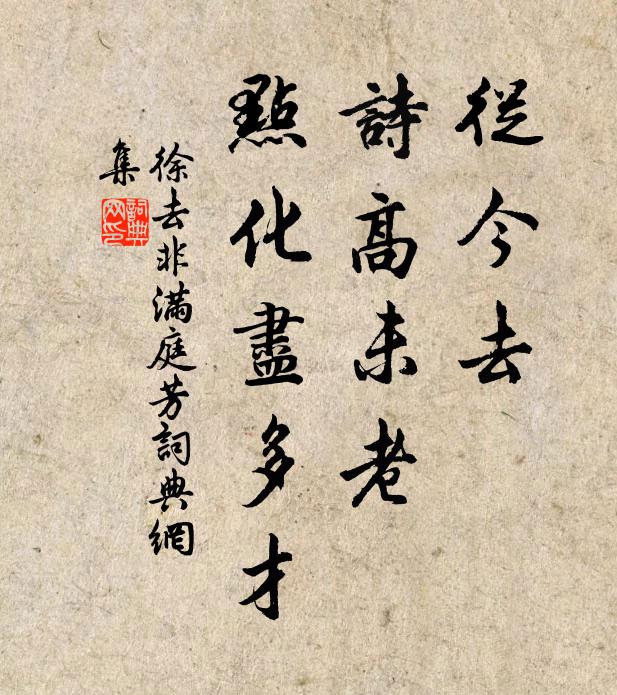 從今去
詩高未老
點化盡多才
徐去非滿庭芳詞典網
集
詞典
网印